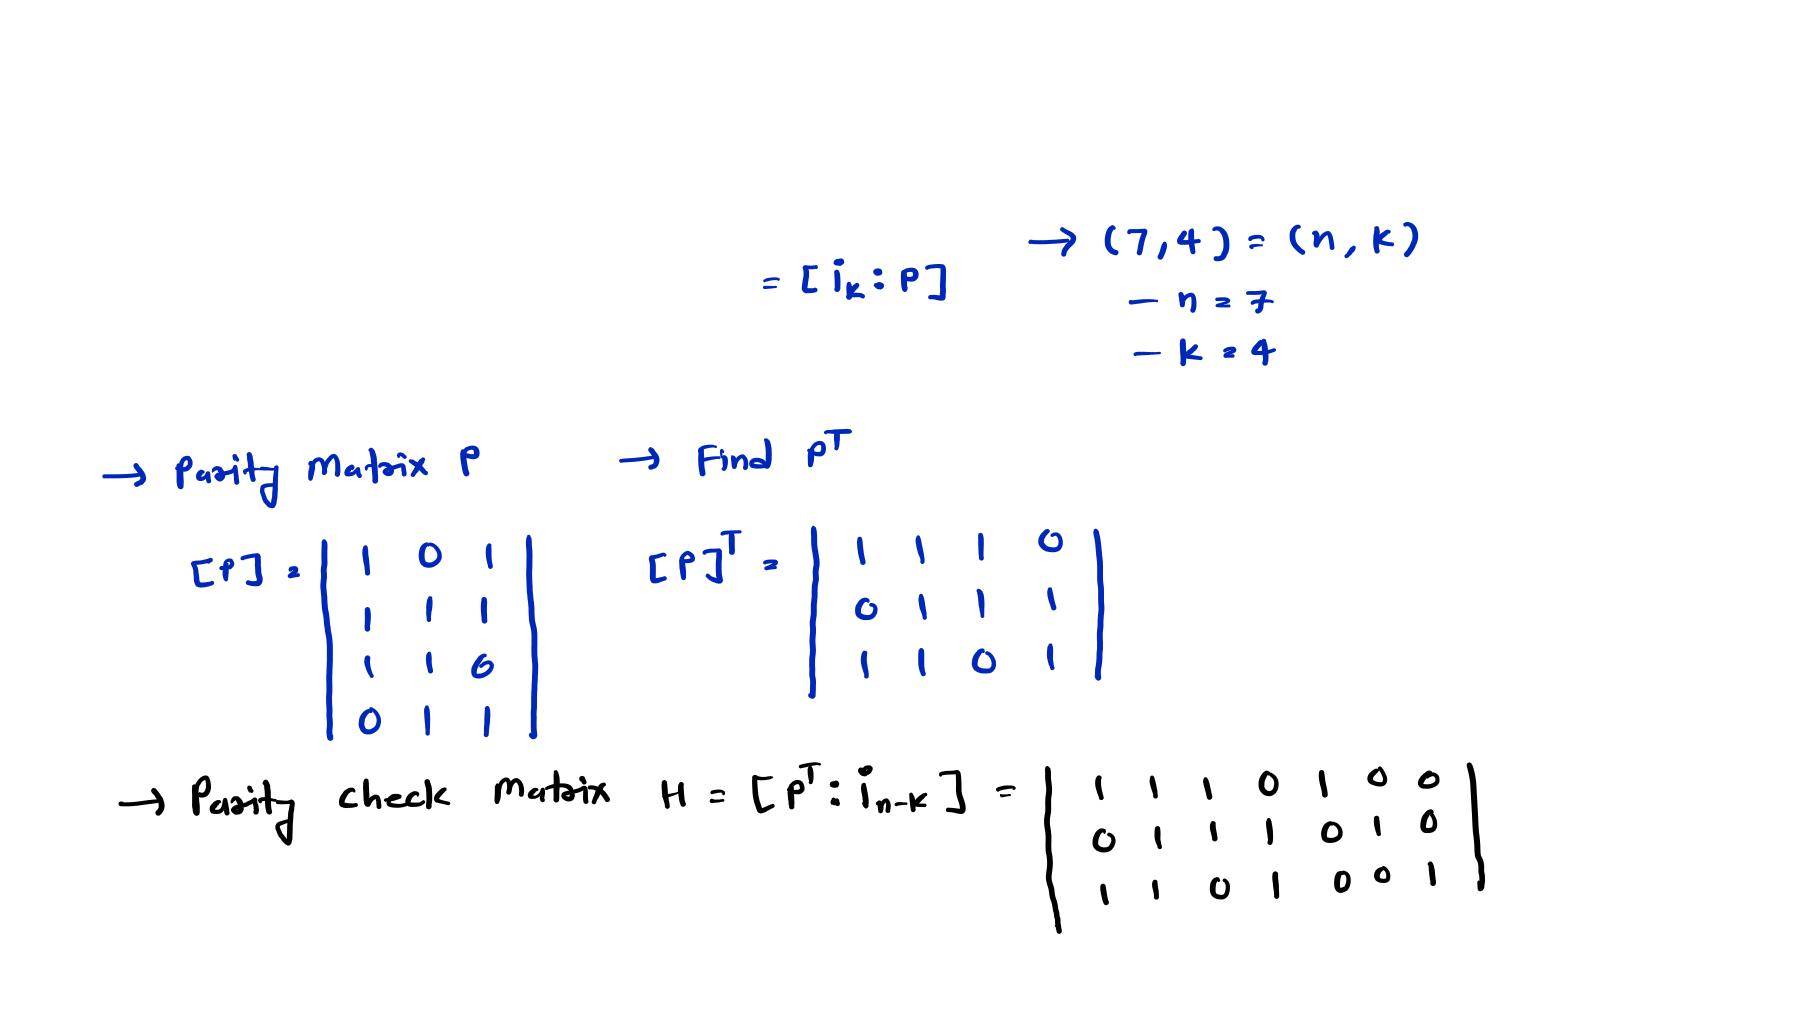 = [ik : P]
→ (7,4) = (n, k)
— n = 7
— k = 4
→ Parity Matrix P
→ Find Pᵀ
[P] = | 1 0 1 |
| 1 1 1 |
| 1 1 0 |
| 0 1 1 |
[P]ᵀ = | 1 1 1 0 |
| 0 1 1 1 |
| 1 1 0 1 |
→ Parity check Matrix H = [Pᵀ : in-k] = | 1 1 1 0 1 0 0 |
| 0 1 1 1 0 1 0 |
| 1 1 0 1 0 0 1 |